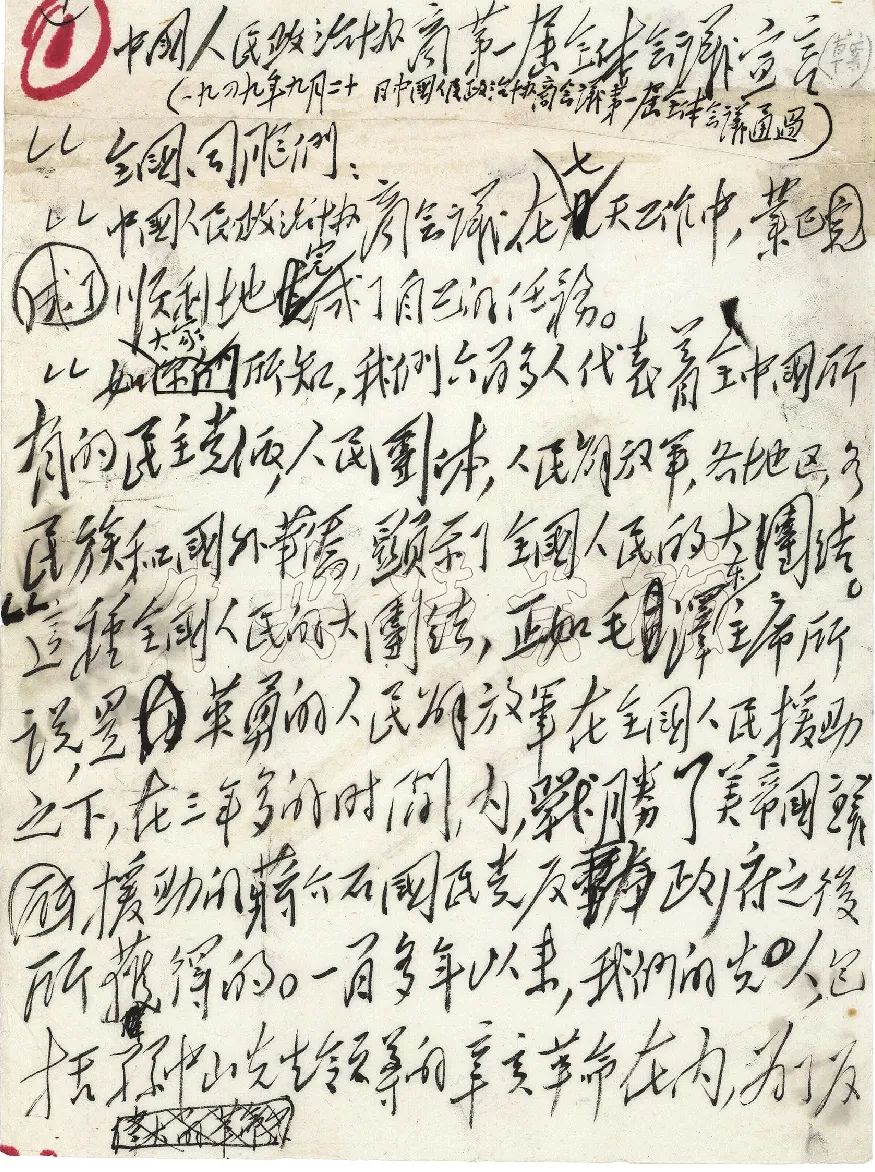 中國人民政治協商第一屆全体会議宣言
(一九四九年九月二十 日中國人民政治協商会議第一屆全体会議通過)
全國同胞們：
中國人民政治協商会議在七天工作中，業已完
成了順利地完成了自己的任務。
如大家所知，我們六百多人代表着全中國所
有的民主党派，人民團体，人民解放軍，各地区，各
民族和國外華僑，顯示了全國人民的大團結。
這種全國人民的大團結，正如毛澤东主席所
說，是在英勇的人民解放軍在全國人民援助
之下，在三年多的时间内，戰勝了美帝國主義
所援助的蔣介石國民党反動政府之後
所獲得的。一百多年以来，我們的先人，包
括孫中山先生領導的辛亥革命在内，为了反
偉大的革命